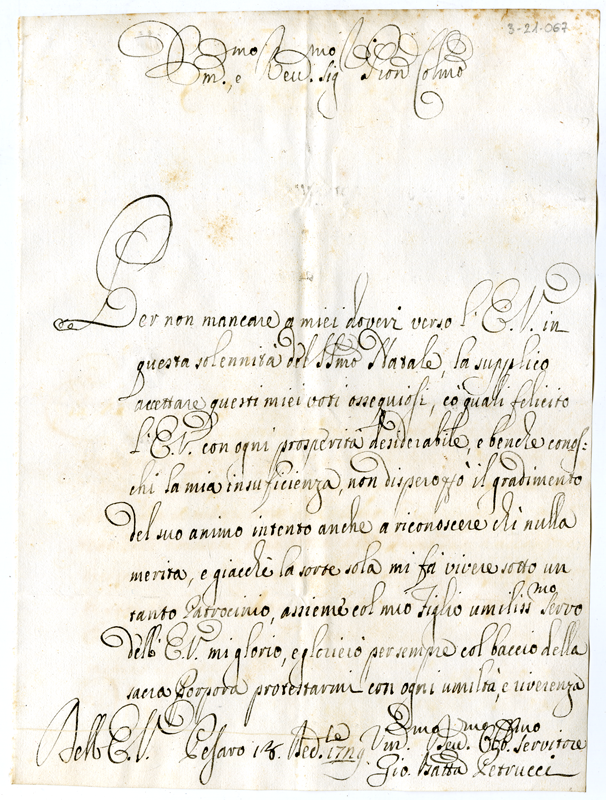 3-21-067
Emo e Rmo Sig. Pron Colmo
Per non mancare a miei doveri verso l'E.V. in
questa solennità del SSmo Natale, la supplico
accettare questi miei voti ossequiosi, co quali felicito
l'E.V. con ogni prosperità desiderabile, e benche conos:
chi la mia insuficienza, non disperozzò il gradimento
del suo animo intento anche a riconoscere chi nulla
merita, e giacchè la sorte sola mi fà vivere sotto un
tanto Patrocinio, assieme col mio Figlio umilissmo Servo
dell'E.V. mi glorio, e glorierò per sempre col baccio della
sacra Porpora protestarmi con ogni umiltà, e riverenza
Dell'E.V. Pesaro 18. 1729. Um. Dev. Obb. Servitore
Gio. Batta Petrucci